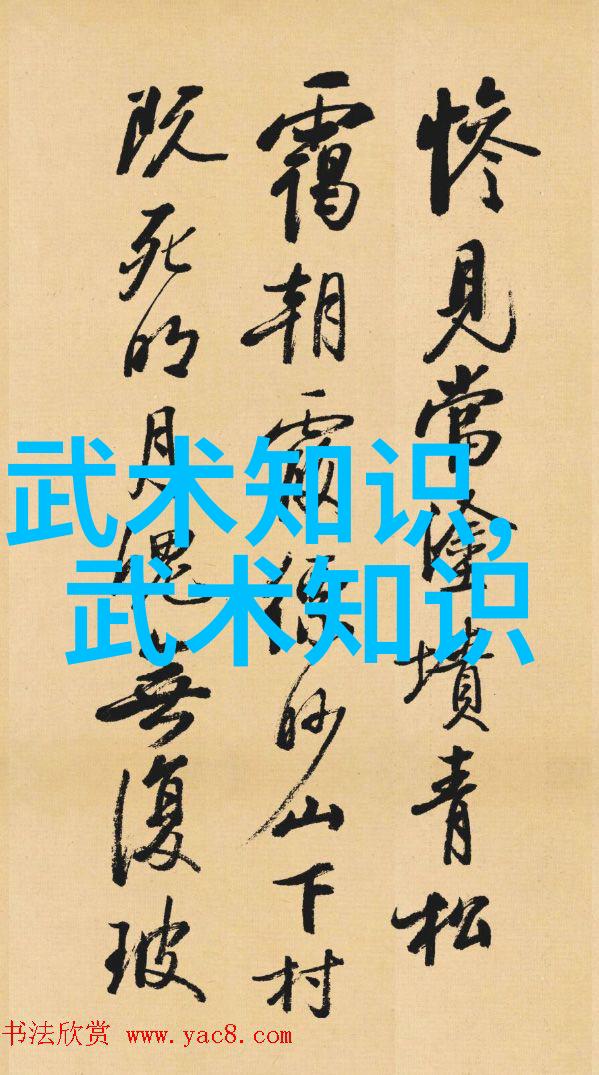 惨見當塗墳青松
靄朝霞縹緲山下村
既死明月魄無復玻
武术知识,
武术知识
书法欣赏 www.yac8.com